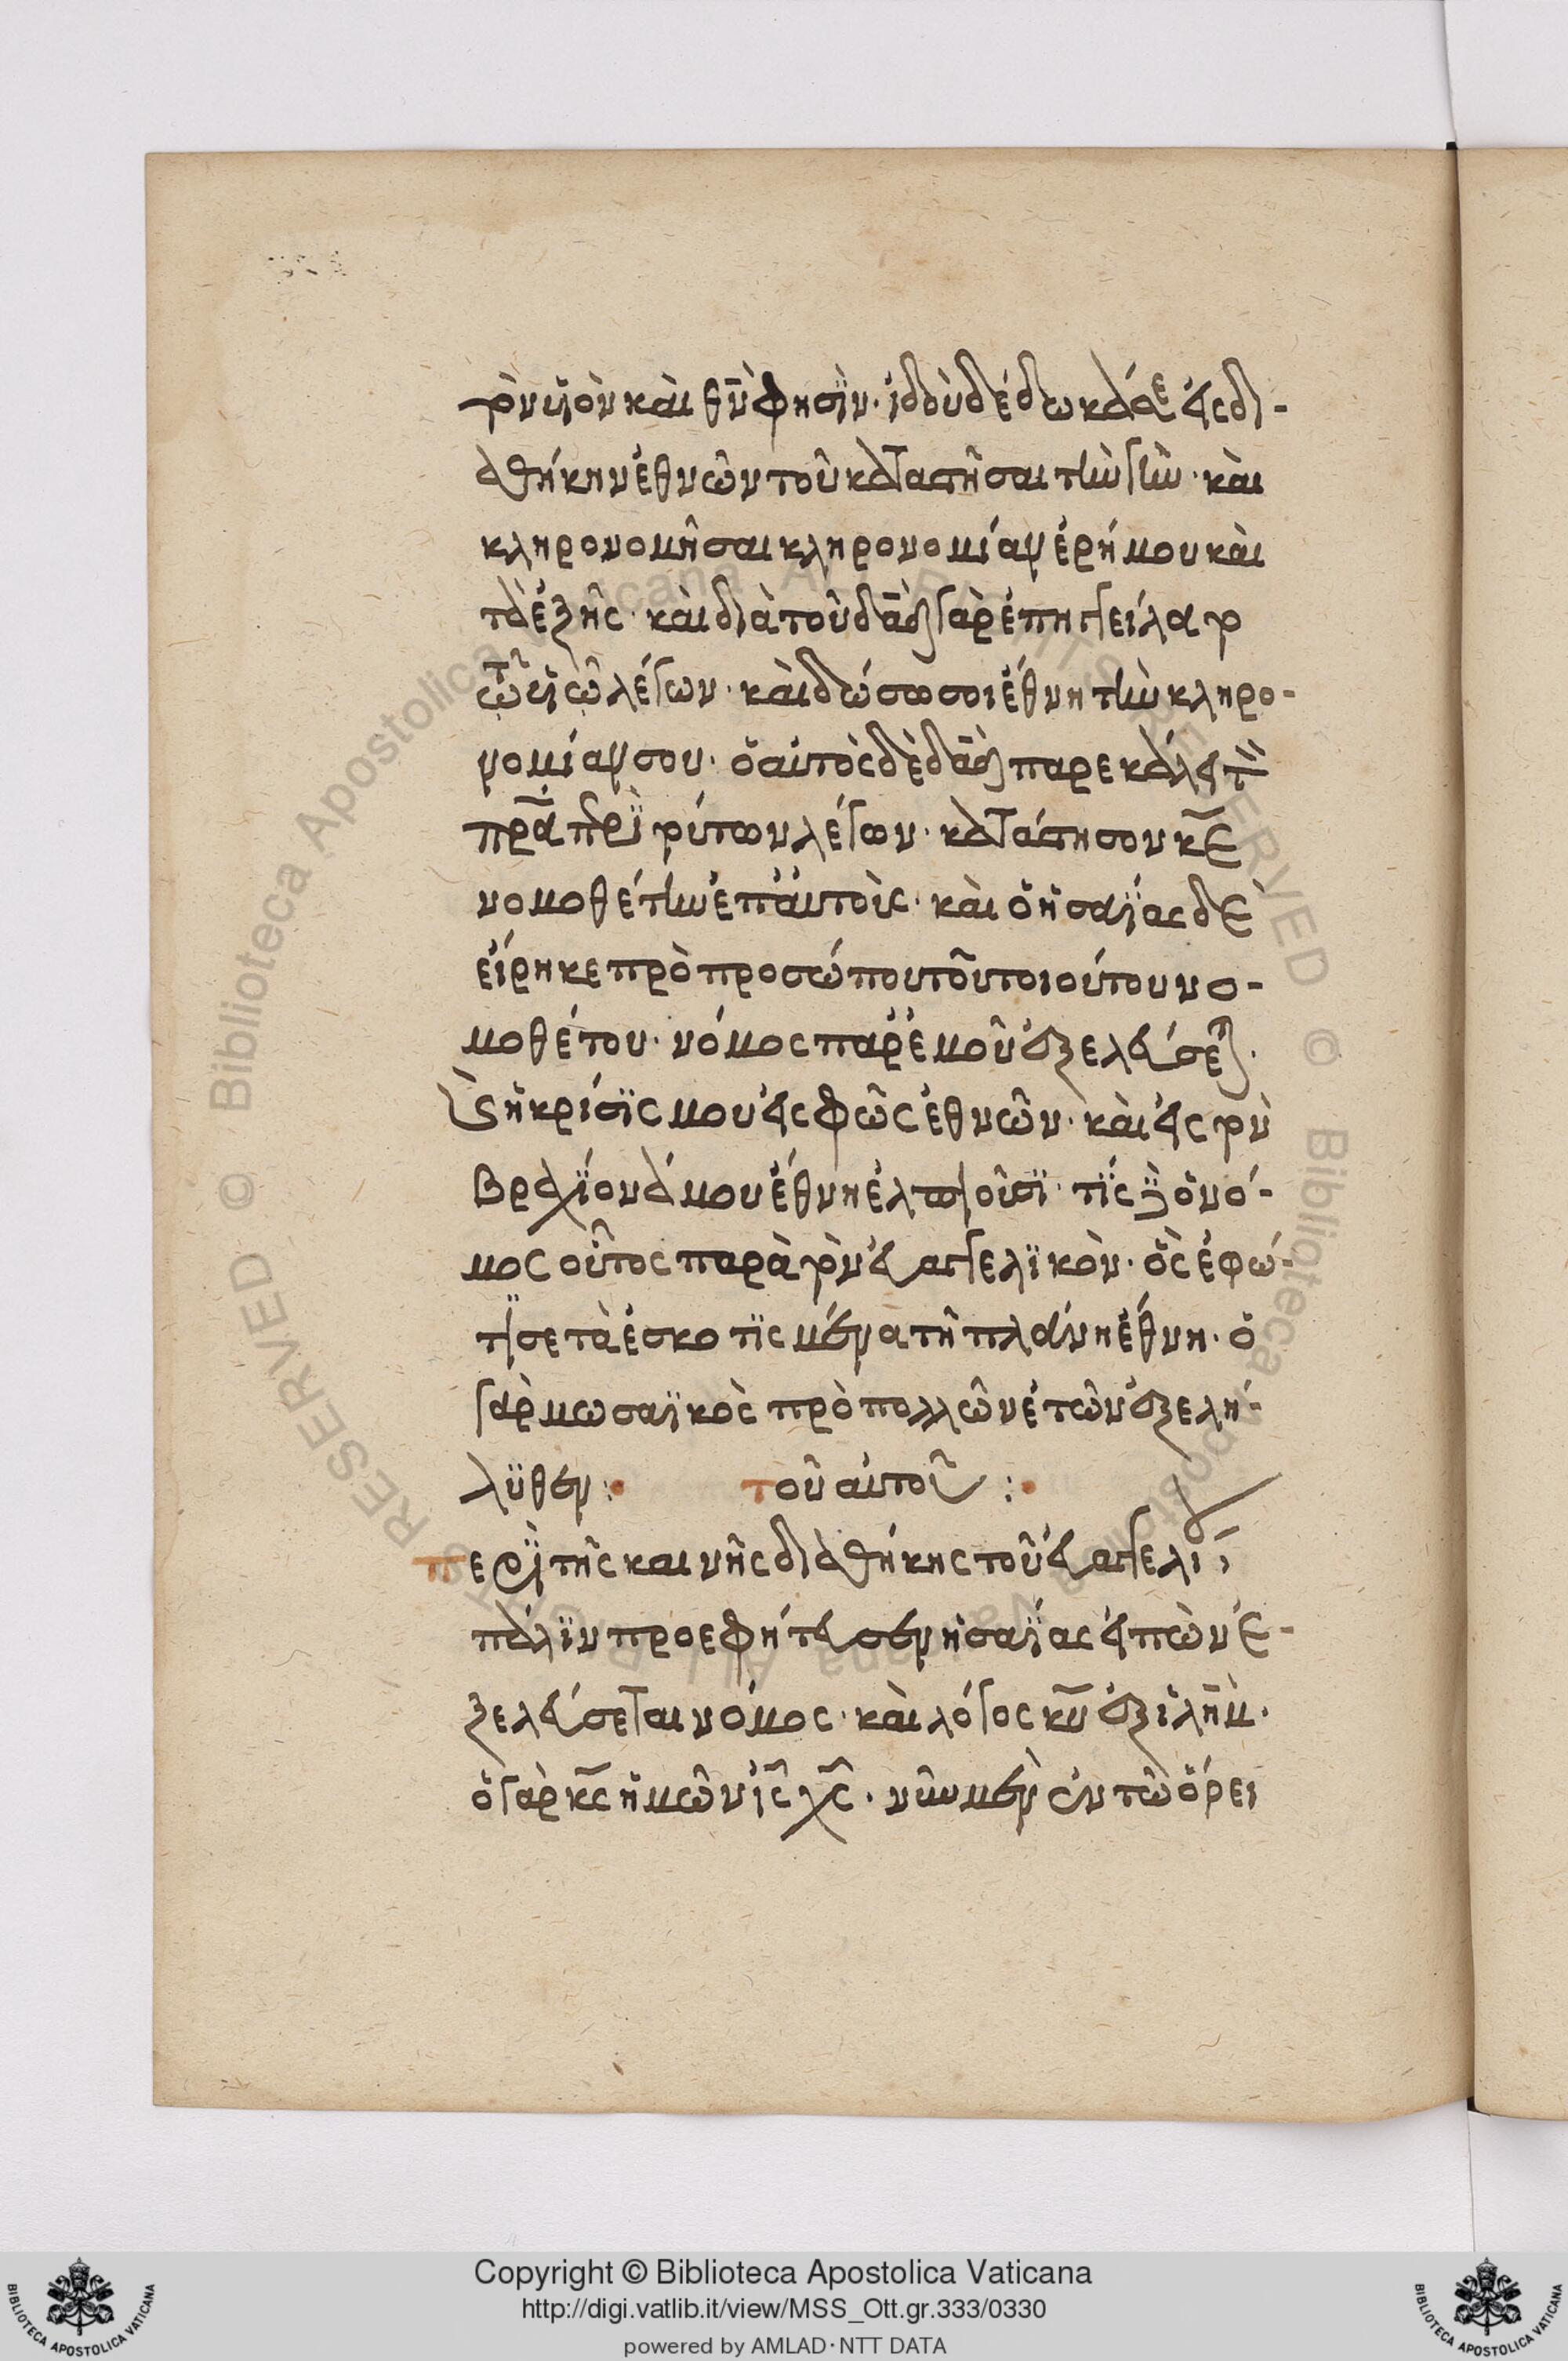 τὸν υἱὸν καὶ θν̅ φησὶν· ἰδοὺ δέδωκά σε εἰς δι-
αθήκην ἐθνῶν τοῦ καταστῆσαι τὴν γῆν· καὶ
κληρονομῆσαι κληρονομίαν ἐρήμου καὶ
τὰ ἑξῆς· καὶ διὰ τοῦ δα̅δ γὰρ ἐπηγγείλατο
τῶ υἱῶ λέγων· καὶ δώσω σοι ἔθνη τὴν κληρο-
νομίαν σου· ὁ αὐτὸς δὲ δα̅δ παρεκάλει τὸν
πρ̅α περὶ τούτων λέγων· κατάστησον κ̅ε
νομοθέτην ἐπ' αὐτοὺς· καὶ ὁ ἡσαΐας δὲ
εἴρηκε πρὸ προσώπου τοῦ τοιούτου νο-
μοθέτου· νόμος παρ' ἐμοῦ ἐξελεύσεται·
καὶ ἡ κρίσις μου εἰς φῶς ἐθνῶν· καὶ εἰς τὸν
βραχίονά μου ἔθνη ἐλπιοῦσι· τίς γὰρ ὁ νό-
μος οὗτος παρὰ τὸν εὐαγγελικὸν· ὃς ἐφώ-
τισε τὰ ἐσκοτισμένα τῆ πλάνη ἔθνη· ὁ
γὰρ μωσαϊκὸς πρὸ πολλῶν ἐτῶν ἐξελη-
λύθεν: τοῦ αὐτοῦ:
περὶ τῆς καινῆς διαθήκης τοῦ εὐαγγελίου
πάλιν προεφήτευσεν ἡσαΐας εἰπὼν ἐ-
ξελεύσεται νόμος· καὶ λόγος κ̅υ ἐξ ἰλη̅μ·
ὁ γὰρ κ̅ς ἡμῶν ι̅ς χ̅ς· νῦν μὲν ἐν τῶ ὄρει
Copyright © Biblioteca Apostolica Vaticana
http://digi.vatlib.it/view/MSS_Ott.gr.333/0330
powered by AMLAD·NTT DATA